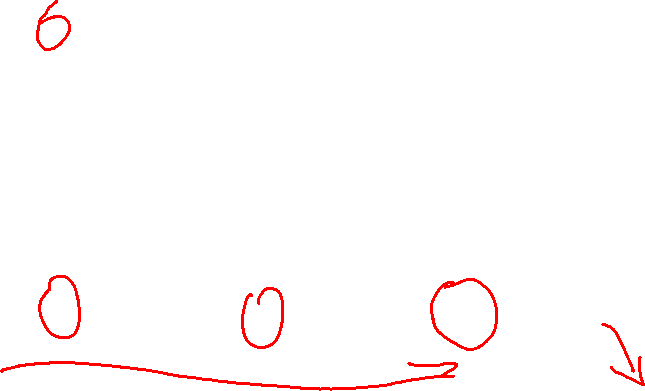 6
0 0 0